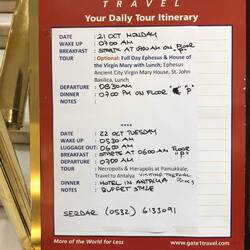 TRAVEL
Your Daily Tour Itinerary
DATE : 21 OCT MONDAY
WAKE UP : 07:00 AM
BREAKFAST : STARTS AT 07:00 AM ON FLOOR "P"
TOUR : Optional: Full Day Ephesus & House of
the Virgin Mary with Lunch; Ephesus
Ancient City Virgin Mary House, St. John
Basilica, Lunch
DEPARTURE : 08:30AM
DINNER : 07:00 PM ON FLOOR "P"
NOTES :
DATE : 22 OCT TUESDAY
WAKE UP : 05:30 AM
LUGGAGE OUT : 06:00 AM
BREAKFAST : STARTS AT 06:00 AM FLOOR "P"
DEPARTURE : 07:00 AM
TOUR : Necropolis & Hierapolis at Pamukkale,
Travel to Antalya
DINNER : HOTEL IN ANTALYA
NOTES : BUFFET STYLE
SERDAR (0532) 6133091
More of the World for Less
www.gate1travel.com